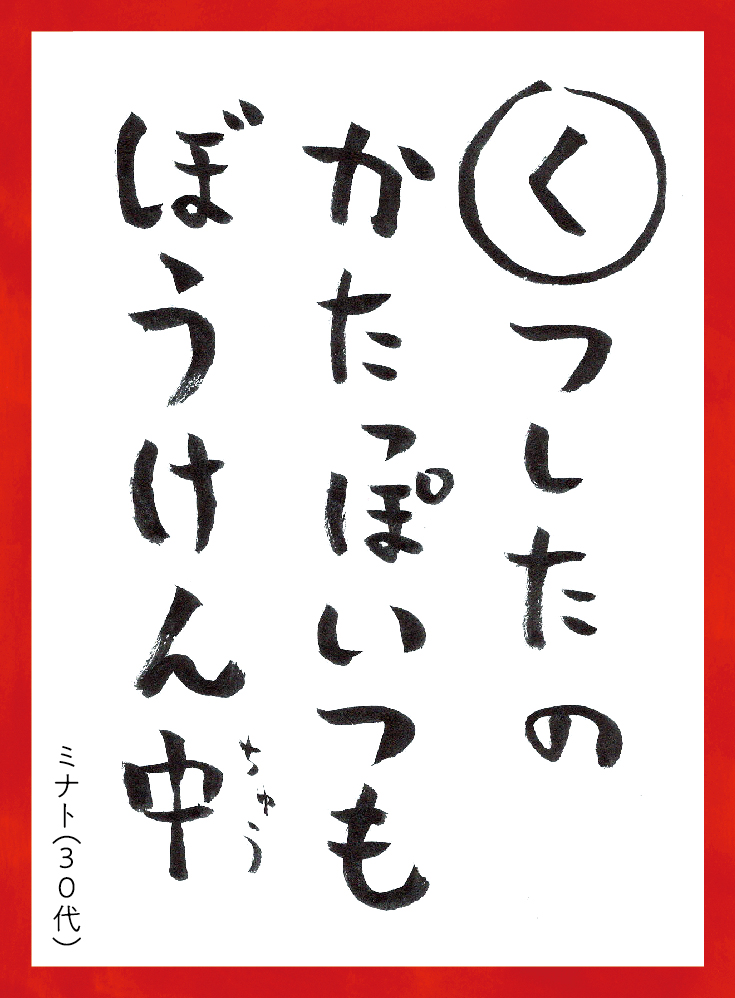 くつしたの
かたっぽいつも
ぼうけん中
ちゅう
ミナト(30代)